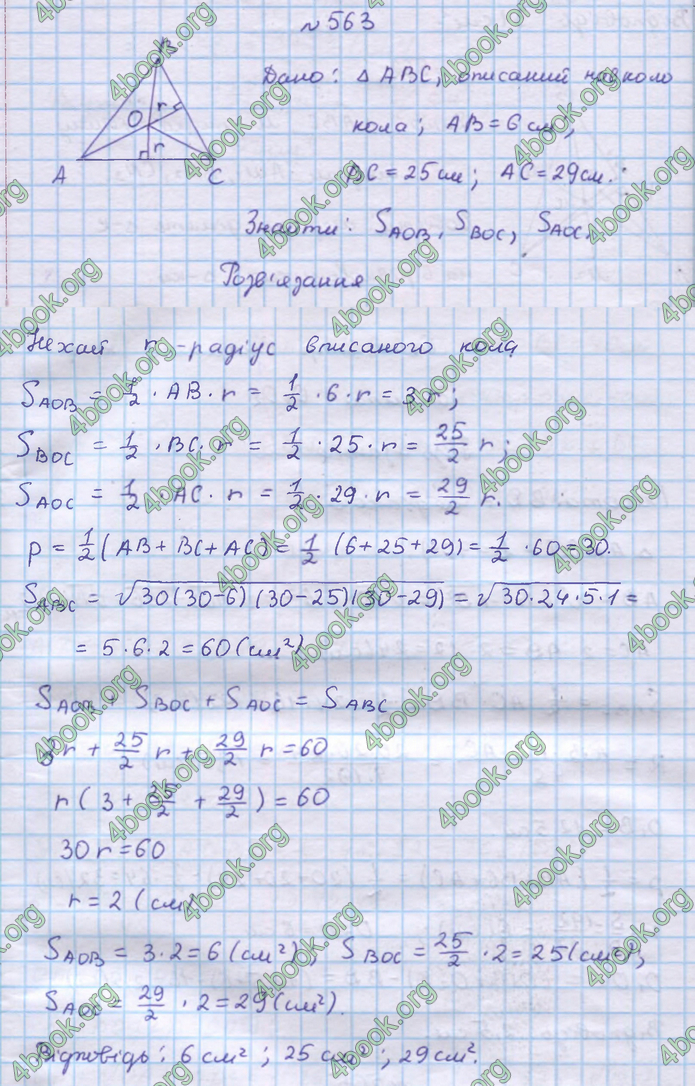 №563
B
O
r
r
A
C
Дано: △ABC, описаний навколо
кола; AB=6см;
BC=25см; AC=29см.
Знайти: S_AOB, S_BOC, S_AOC.
Розв'язання
Нехай r -радіус вписаного кола
S_AOB = 1/2 · AB · r = 1/2 · 6 · r = 3r;
S_BOC = 1/2 · BC · r = 1/2 · 25 · r = 25/2 r;
S_AOC = 1/2 · AC · r = 1/2 · 29 · r = 29/2 r.
p = 1/2 (AB + BC + AC) = 1/2 (6+25+29) = 1/2 · 60 = 30.
S_ABC = √30(30-6)(30-25)(30-29) = √30·24·5·1 =
= 5·6·2 = 60 (см²)
S_AOB + S_BOC + S_AOC = S_ABC
3r + 25/2 r + 29/2 r = 60
r ( 3 + 25/2 + 29/2 ) = 60
30 r = 60
r = 2 (см)
S_AOB = 3·2 = 6 (см²), S_BOC = 25/2 · 2 = 25 (см²),
S_AOC = 29/2 · 2 = 29 (см²).
Відповідь: 6 см²; 25 см²; 29 см².
4book.org